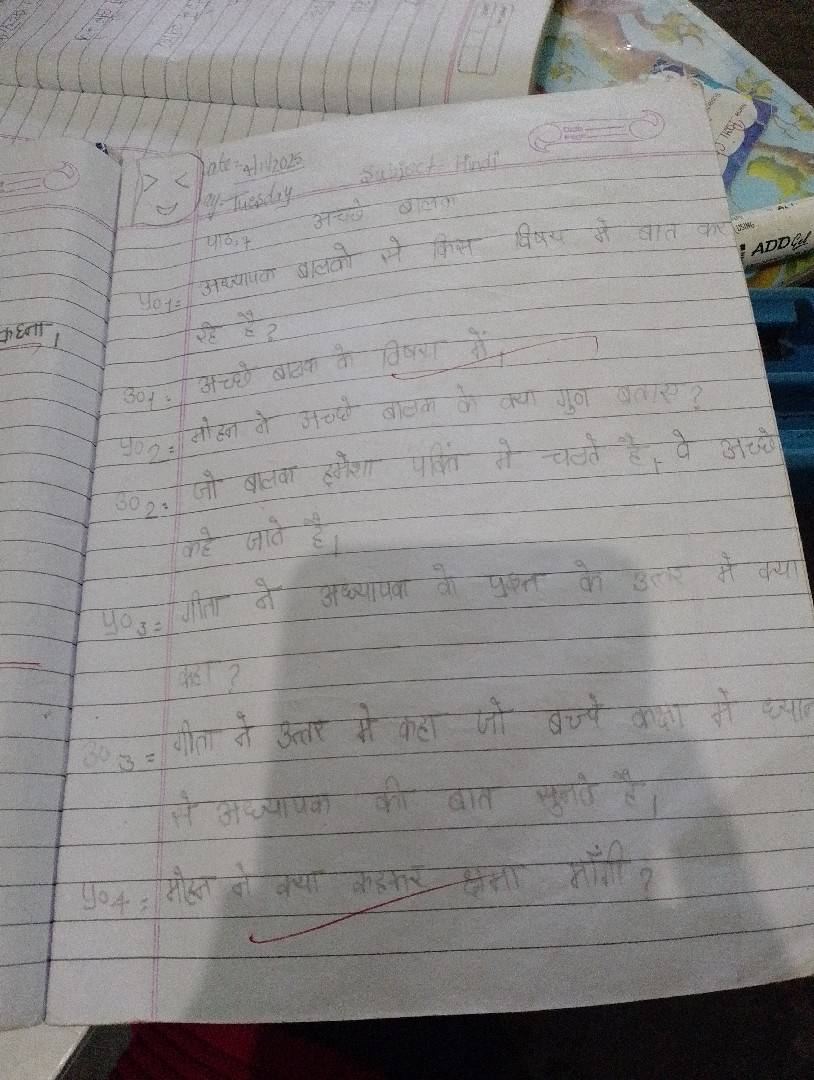 Date=4/11/2025 Subject Hindi
Day-Tuesday
पाठ,7 अच्छे बालक
प्र०1= अध्यापक बालको से किस विषय में बात कर
रहे है?
उ०1= अच्छे बालक के विषय में,
प्र०2= मोहन ने अच्छे बालक के क्या गुण बताए?
उ०2= जो बालक हमेशा पक्तिं मे चलते है, वे अच्छे
कहे जाते है।
प्र०3= गीता ने अध्यापक के प्रश्न के उत्तर मे क्या
कहा?
उ०3= गीता ने उत्तर मे कहा जो बच्चे कक्षा मे ध्यान
से अध्यापक की बात सुनते है।
प्र०4= मोहन ने क्या कहकर क्षमा माँगी?
कहना,
ADD Gel
USING